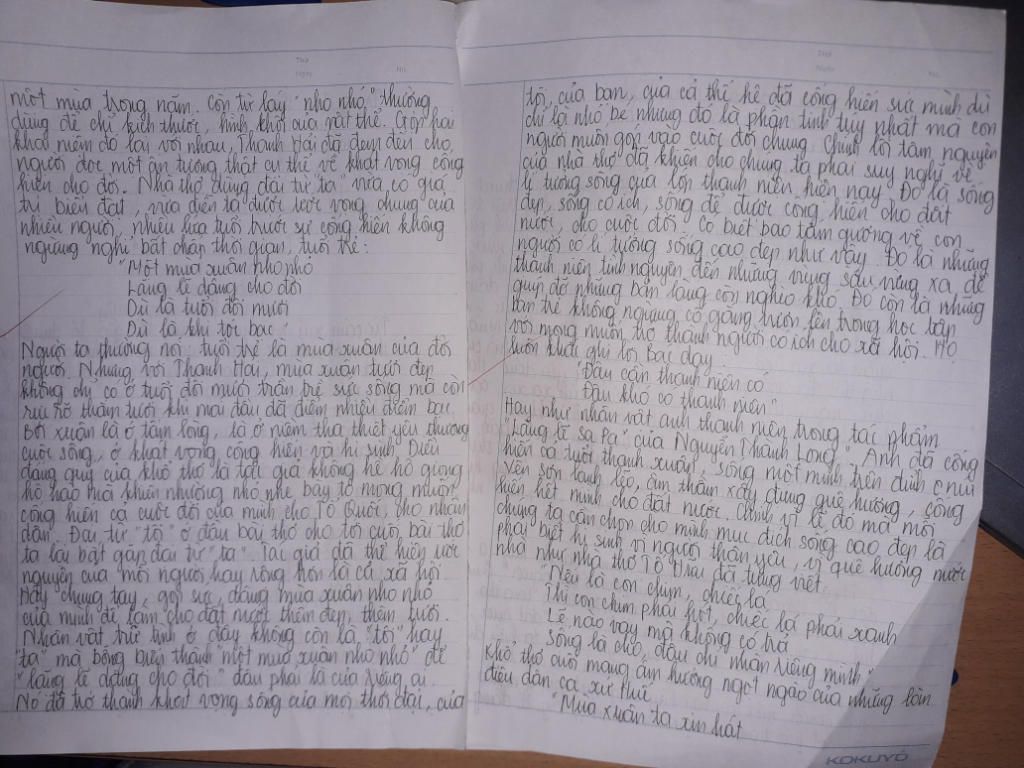 một mùa trong năm. Còn từ láy "nho nhỏ" thường
dùng để chỉ kích thước, hình khối của vật thể. Gộp hai
khái niệm đó lại với nhau, Thanh Hải đã đem đến cho
người đọc một ấn tượng thật cụ thể về khát vọng cống
hiến cho đời. Nhà thơ dùng đại từ "ta" vừa có giá
trị biểu đạt, vừa diễn tả được ước vọng chung của
nhiều người, nhiều lứa tuổi trước sự cống hiến không
ngừng nghỉ bất chấp thời gian, tuổi trẻ:
"Một mùa xuân nho nhỏ
Lặng lẽ dâng cho đời
Dù là tuổi đôi mươi
Dù là khi tóc bạc"
Người ta thường nói: tuổi trẻ là mùa xuân của đời
người. Nhưng với Thanh Hải, mùa xuân tươi đẹp
không chỉ có ở tuổi đôi mươi tràn trề sức sống mà còn
rực rỡ thắm tươi khi mái đầu đã điểm nhiều điểm bạc
Bởi xuân là ở tấm lòng, là ở niềm tha thiết yêu thương
cuộc sống, ở khát vọng cống hiến và hi sinh. Điều
đáng quý của khổ thơ là tác giả không hề hô giọng
hô hào mà khiêm nhường nhỏ nhẹ bày tỏ mong muốn
cống hiến cả cuộc đời của mình cho Tổ Quốc, cho nhân
dân. Đại từ "tôi" ở đầu bài thơ cho tới cuối bài thơ
ta lại bắt gặp đại từ "ta". Tác giả đã thể hiện ước
nguyện của mỗi người hay rộng hơn là cả xã hội.
Hãy chung tay, góp sức, dâng mùa xuân nho nhỏ
của mình để làm cho đất nước thêm đẹp, thêm tươi.
Nhân vật trữ tình ở đây không còn là "tôi" hay
"ta" mà bỗng biến thành "một mùa xuân nho nhỏ" để
"lặng lẽ dâng cho đời" đâu phải là của riêng ai
Nó đã trở thành khát vọng sống của mọi thời đại, của
tôi, của bạn, của cả thế hệ đã cống hiến sức mình dù
chỉ là nhỏ bé nhưng đó là phần tinh túy nhất mà con
người muốn góp vào cuộc đời chung. Chính lời tâm nguyện
của nhà thơ đã khiến cho chúng ta phải suy nghĩ về
lí tưởng sống của lớp thanh niên hiện nay. Đó là sống
đẹp, sống có ích, sống để được cống hiến cho đất
nước, cho cuộc đời. Có biết bao tấm gương về con
người có lí tưởng sống cao đẹp như vậy. Đó là những
thanh niên tình nguyện đến những vùng sâu vùng xa để
giúp đỡ những bản làng còn nghèo khó. Đó còn là những
bạn trẻ không ngừng cố gắng vươn lên trong học tập
với mong muốn trở thành người có ích cho xã hội. Họ
luôn khắc ghi lời Bác dạy:
"Đâu cần thanh niên có
Đâu khó có thanh niên"
Hay như nhân vật anh thanh niên trong tác phẩm
"Lặng lẽ Sa Pa" của Nguyễn Thành Long. Anh đã cống
hiến cả tuổi thanh xuân, sống một mình trên đỉnh núi
Yên Sơn lạnh lẽo, âm thầm xây dựng quê hương, cống
hiến hết mình cho đất nước. Chính vì lẽ đó mà mỗi
chúng ta cần chọn cho mình mục đích sống cao đẹp là
phải biết hi sinh vì người thân yêu, vì quê hương nước
nhà như nhà thơ Tố Hữu đã từng viết:
"Nếu là con chim, chiếc lá
Thì con chim phải hót, chiếc lá phải xanh
Lẽ nào vay mà không có trả
Sống là cho, đâu chỉ nhận riêng mình"
Khổ thơ cuối mang âm hưởng ngọt ngào của những làn
điệu dân ca xứ Huế
"Mùa xuân ta xin hát
KOKUYO